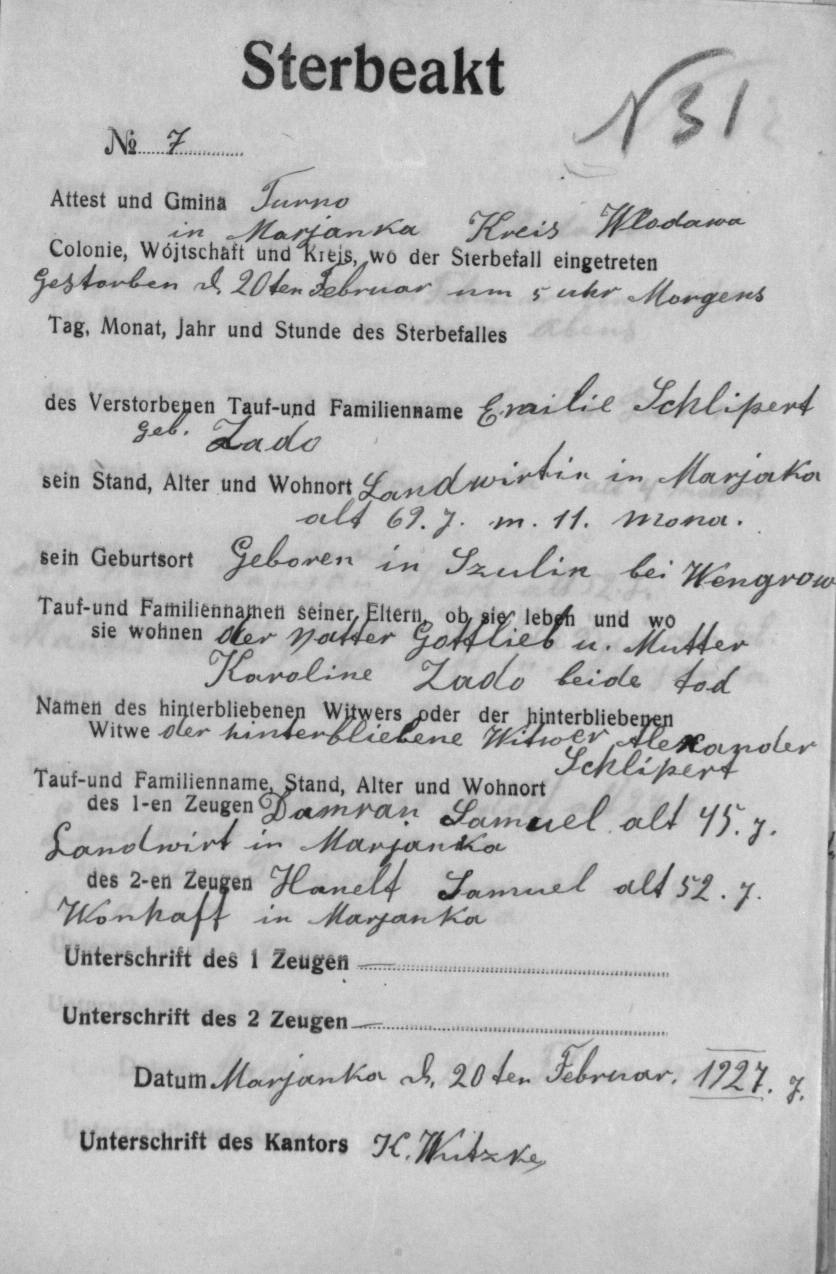 Sterbeakt
N 31
№ 7
Attest und Gmina Turno
in Marjanka Kreis Wlodawa
Colonie, Wójtschaft und Kreis, wo der Sterbefall eingetreten
Gestorben d. 20ten Februar um 5 uhr Morgens
Tag, Monat, Jahr und Stunde des Sterbefalles
des Verstorbenen Tauf-und Familienname Emilie Schlipert
geb. Zado
sein Stand, Alter und Wohnort Landwirtin in Marjaka
alt 69. J. m. 11. Mona.
sein Geburtsort Geboren in Szulin bei Wengrow
Tauf-und Familiennamen seiner Eltern, ob sie leben und wo
sie wohnen der Vatter Gottlieb u. Mutter
Karoline Zado beide tod
Namen des hinterbliebenen Witwers oder der hinterbliebenen
Witwe der hinterbliebene Witwer Alexander
Schlipert
Tauf-und Familienname, Stand, Alter und Wohnort
des 1-en Zeugen Damran Samuel alt 45. J.
Landwirt in Marjanka
des 2-en Zeugen Hanelt Samuel alt 52. J.
Wonhaft in Marjanka
Unterschrift des 1 Zeugen
Unterschrift des 2 Zeugen
Datum Marjanka d. 20ten Februar. 1927. J.
Unterschrift des Kantors K. Wutzke